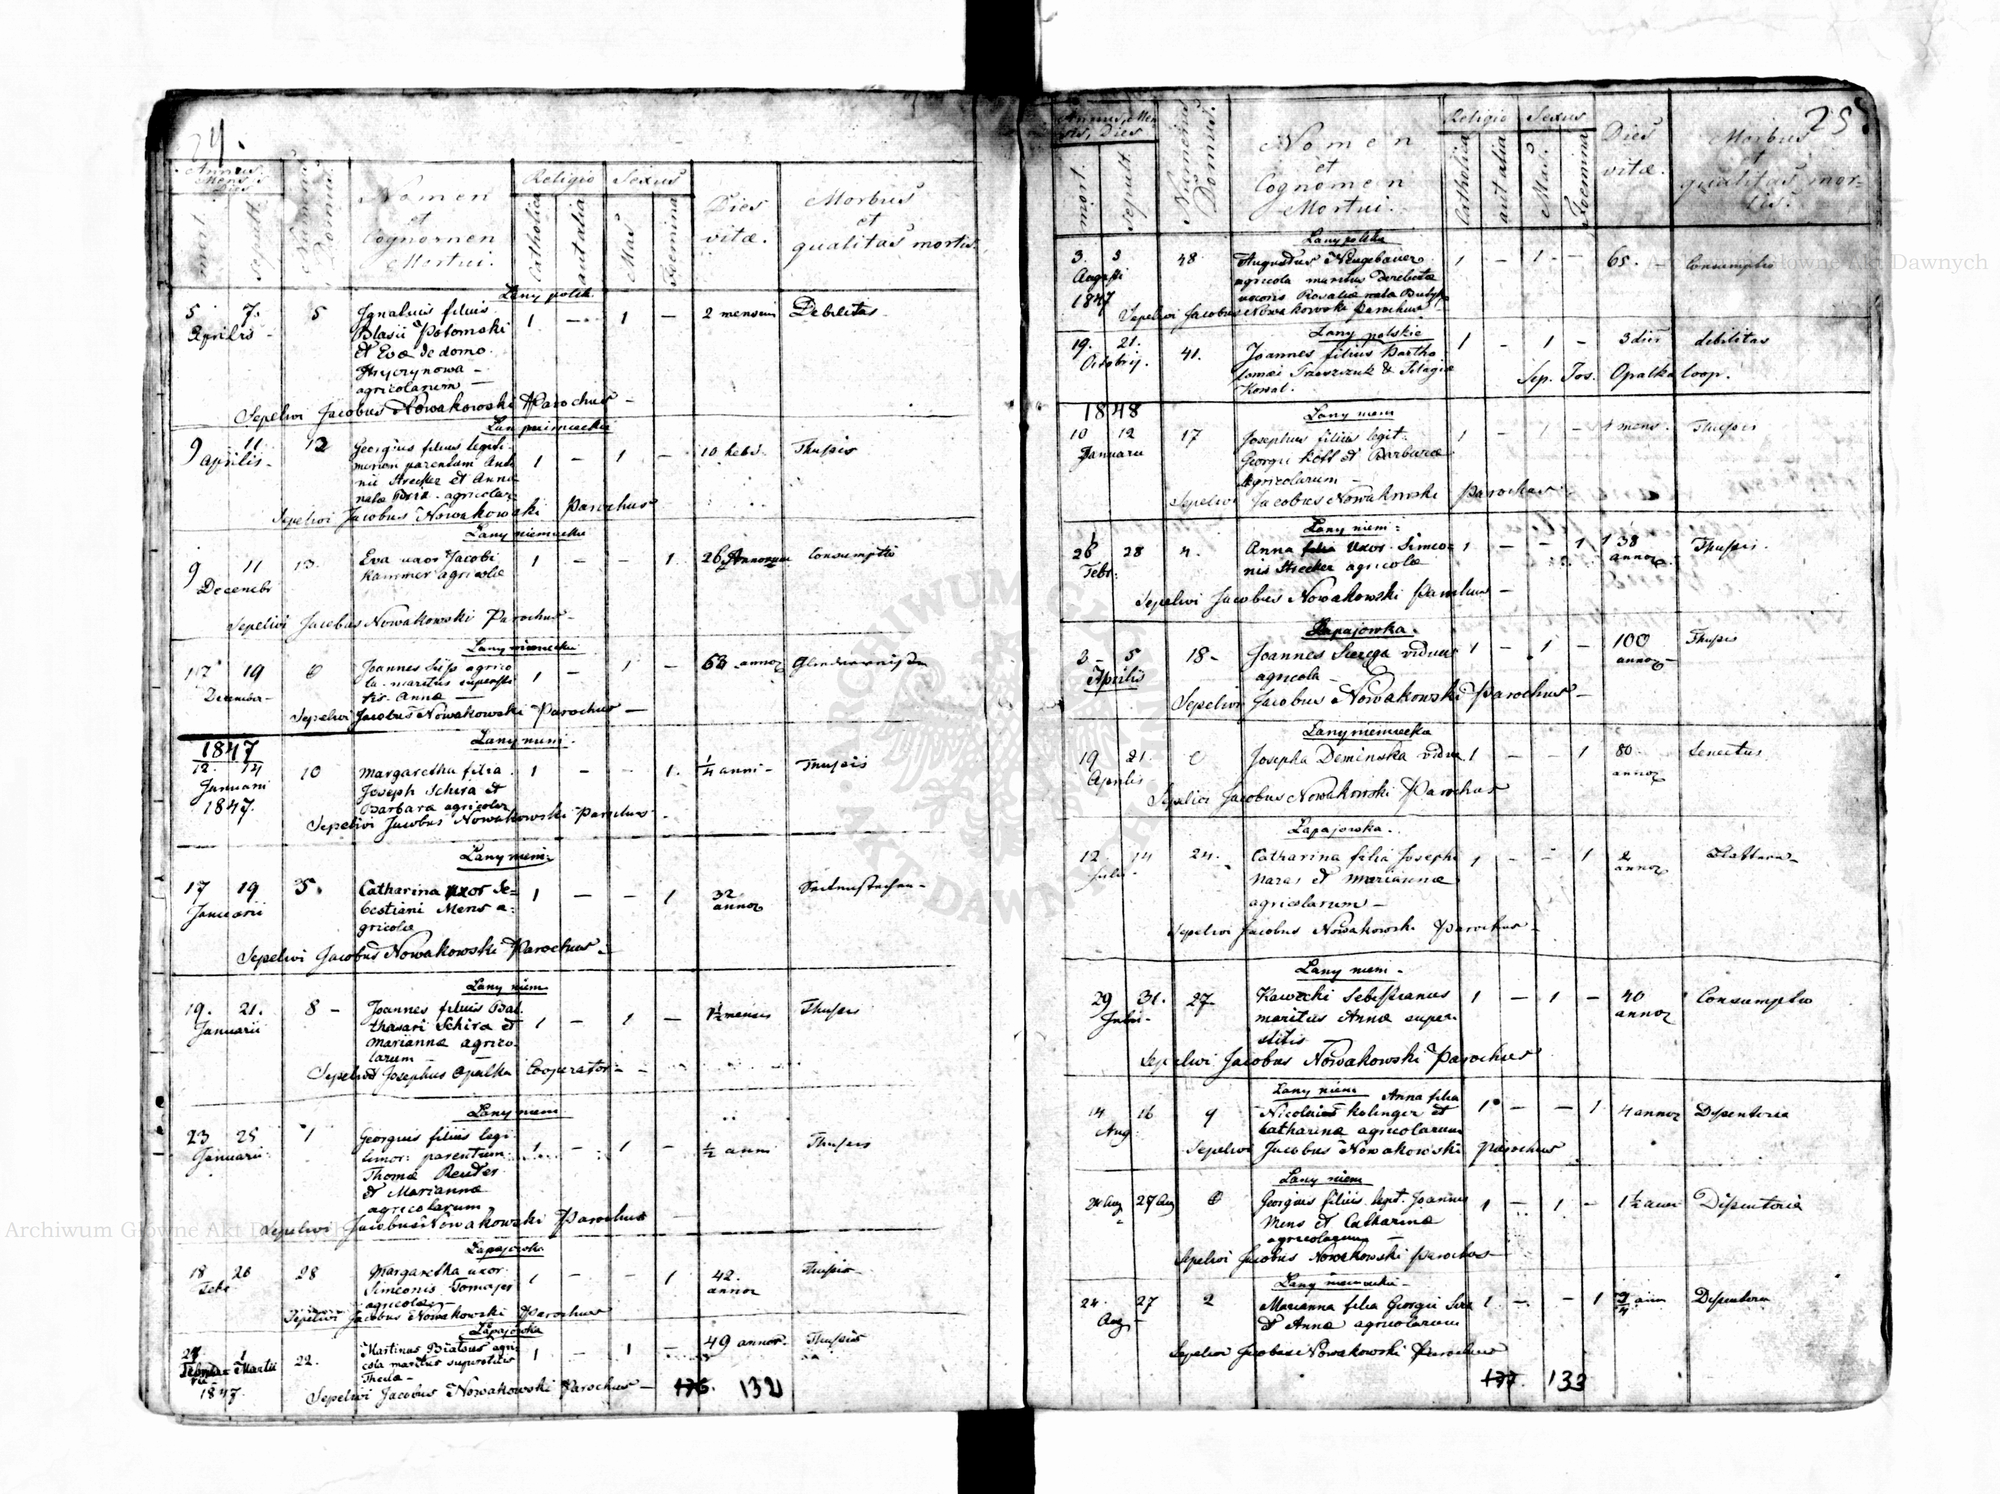 24.
Annus, Mensis, Dies
mort.
sepult.
Numerus Domus.
Nomen
et
Cognomen
Mortui.
Religio
Catholica
aut alia
Sexus
Mas
Foemina
Dies
vitæ.
Morbus
et
qualitas mortis.
Lany polsk.
5 7. 5 Ignatius filius 1 — 1 — 2 mensium Debilitas
Aprilis - Blasii Potomski
et Evæ de domo
agricolarum —
Sepelivi Jacobus Nowakowski Parochus —
9 11 12 Georgius filius legiti- 1 — 1 — 10 hebd. Thussis
Aprilis - morum parentum Anto-
nii Strecker et Anna
nata agricolar
Sepelivi Jacobus Nowakowski Parochus
Lany niemieckie
9 11 13. Eva uxor Jacobi 1 — — 1. 26 Annorum Consumptio
Decembr Kammer agricolæ
Sepelivi Jacobus Nowakowski Parochus —
Lany niemieckie
17 19 0 Joannes Süss agrico 1 — 1 — 63 annor
Decembr - la maritus supersti
tis Annæ —
Sepelivi Jacobus Nowakowski Parochus —
1847
Lany niem.
12. 14 10 Margaretha filia 1 — — 1. 1/4 anni - Thussis
Januarii Joseph Schira et
1847. Barbara agricolar
Sepelivi Jacobus Nowakowski Parochus
Lany niem:
17 19 35. Catharina uxor Se= 1 — — 1 32 Seitenstechen -
Januarii bestiani Mens a= annor
gricolæ
Sepelivi Jacobus Nowakowski Parochus —
Lany niem
19. 21. 8 - Joannes filius Bal 1 — 1 — 1 1/2 mensis Thussis
Januarii thasari Schira et
Mariannæ agrico-
larum —
Sepelivit Josephus Opalka Cooperator —
Lany niem
23 25 1 Georgius filius legi 1 — 1 — 1/2 anni Thussis
Januarii timor: parentum
Thomæ Reuter
et Mariannæ
agricolarum
Sepelivi Jacobus Nowakowski Parochus
Lapajowka
18 20 28 Margaretha uxor 1 — — 1 42. Thussis
Febr Simeonis Tomajer annor
agricolæ —
Sepelivi Jacobus Nowakowski Parochus
Lapajowka
27 1 22. Martinus Bialous agri 1 — 1 — 49 annor. Thussis
Februarii Martii cola maritus superstitis
1847 Theclæ —
Sepelivi Jacobus Nowakowski Parochus —
132
25
Annus, Mensis, Dies
mort.
sepult
Numerus Domus.
Nomen
et
Cognomen
Mortui.
Religio
Catholica
aut alia
Sexus
Mas.
Foemina
Dies
vitæ.
Morbus
et
qualitas mortis.
Lany polskie
3. 3 48 Augustus Neugebauer 1 — 1 — 65. Consumptio
Augusti agricola maritus derelictæ
1847 uxoris Rosaliæ nata
Sepelivi Jacobus Nowakowski Parochus
Lany polskie
19. 21. 41. Joannes filius Bartho 1 — 1 — 3 dies debilitas
Octobris. lomæi Trzeszczuk & Pelagiæ
Kowal.
Sep. Jos. Opalka Coop.
1848
Lany niem
10 12 17 Josephus filius legit. 1 — 1 — 4 mens. Thussis
Januarii Georgii Kopf et Barbaræ
agricolarum —
Sepelivi Jacobus Nowakowski Parochus
Lany niem:
26 28 4. Anna filia Uxor Simeo- 1 — — 1 38 Thussis.
Febr. nis Strecker agricolæ annor.
Sepelivi Jacobus Nowakowski Parochus —
Lapajowka.
3 - 5 18 - Joannes Szczęga viduus 1 — 1 — 100 Thussis
Aprilis agricola — annor —
Sepelivi Jacobus Nowakowski Parochus —
Lany niemiecka
19 21. 0 Josepha Deminska vidua 1 — — 1 80 Senectus
Aprilis annor
Sepelivi Jacobus Nowakowski Parochus
Lapajowka.
12. 14 24. Catharina filia Josephi 1 — — 1 2
Julii Naras et Mariannæ annor
agricolarum —
Sepelivi Jacobus Nowakowski Parochus —
Lany niem -
29 31. 27 Kawecki Sebestianus 1 — 1 — 40 Consumptio
Julii - maritus Annæ super- annor
stitis
Sepelivi Jacobus Nowakowski Parochus
Lany niem Anna filia
14 16 9 Nicolai Kolinger et 1 — — 1 4 annor Disenteria
Aug Catharinæ agricolarum
Sepelivi Jacobus Nowakowski Parochus
Lany niem
24 Aug 27 Aug 0 Georgius filius legit. Joannis 1 — 1 — 1 1/2 anni Disenteria
Mens et Catharinæ
agricolarum —
Sepelivi Jacobus Nowakowski Parochus
Lany niemiecki —
24. 27 2 Marianna filia Georgii 1 — — 1 3/4 anni Disenteria
Aug et Annæ agricolarum
Sepelivi Jacobus Nowakowski Parochus
137. 133
Archiwum Główne Akt Dawnych
Archiwum Główne Akt Dawnych
ARCHIWUM GŁÓWNE AKT DAWNYCH